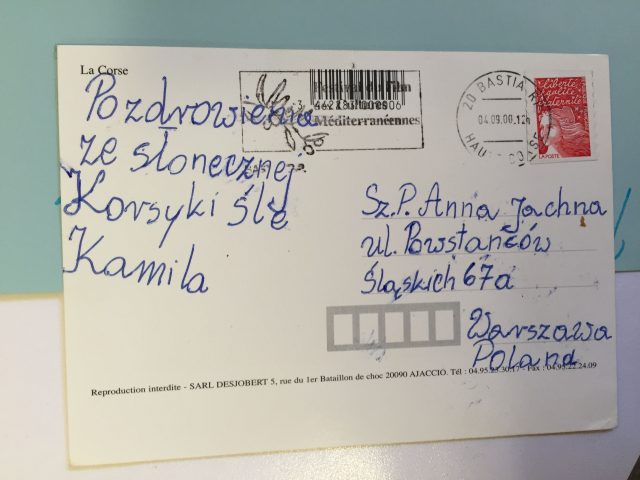 La Corse
Pozdrowienia
ze słonecznej
Korsyki śle
Kamila
Festival du Film
3 462183 000506
& Cultures
Méditerranéennes
20 BASTIA
04.09.00.12h
HAUTE CORSE
liberté
égalité
fraternité
LA POSTE
Sz.P. Anna Jachna
ul. Powstańców
Śląskich 67a
Warszawa
Poland
Reproduction interdite - SARL DESJOBERT 5, rue du 1er Bataillon de choc 20090 AJACCIO. Tél : 04.95.23.30.17 - Fax : 04.95.22.24.09